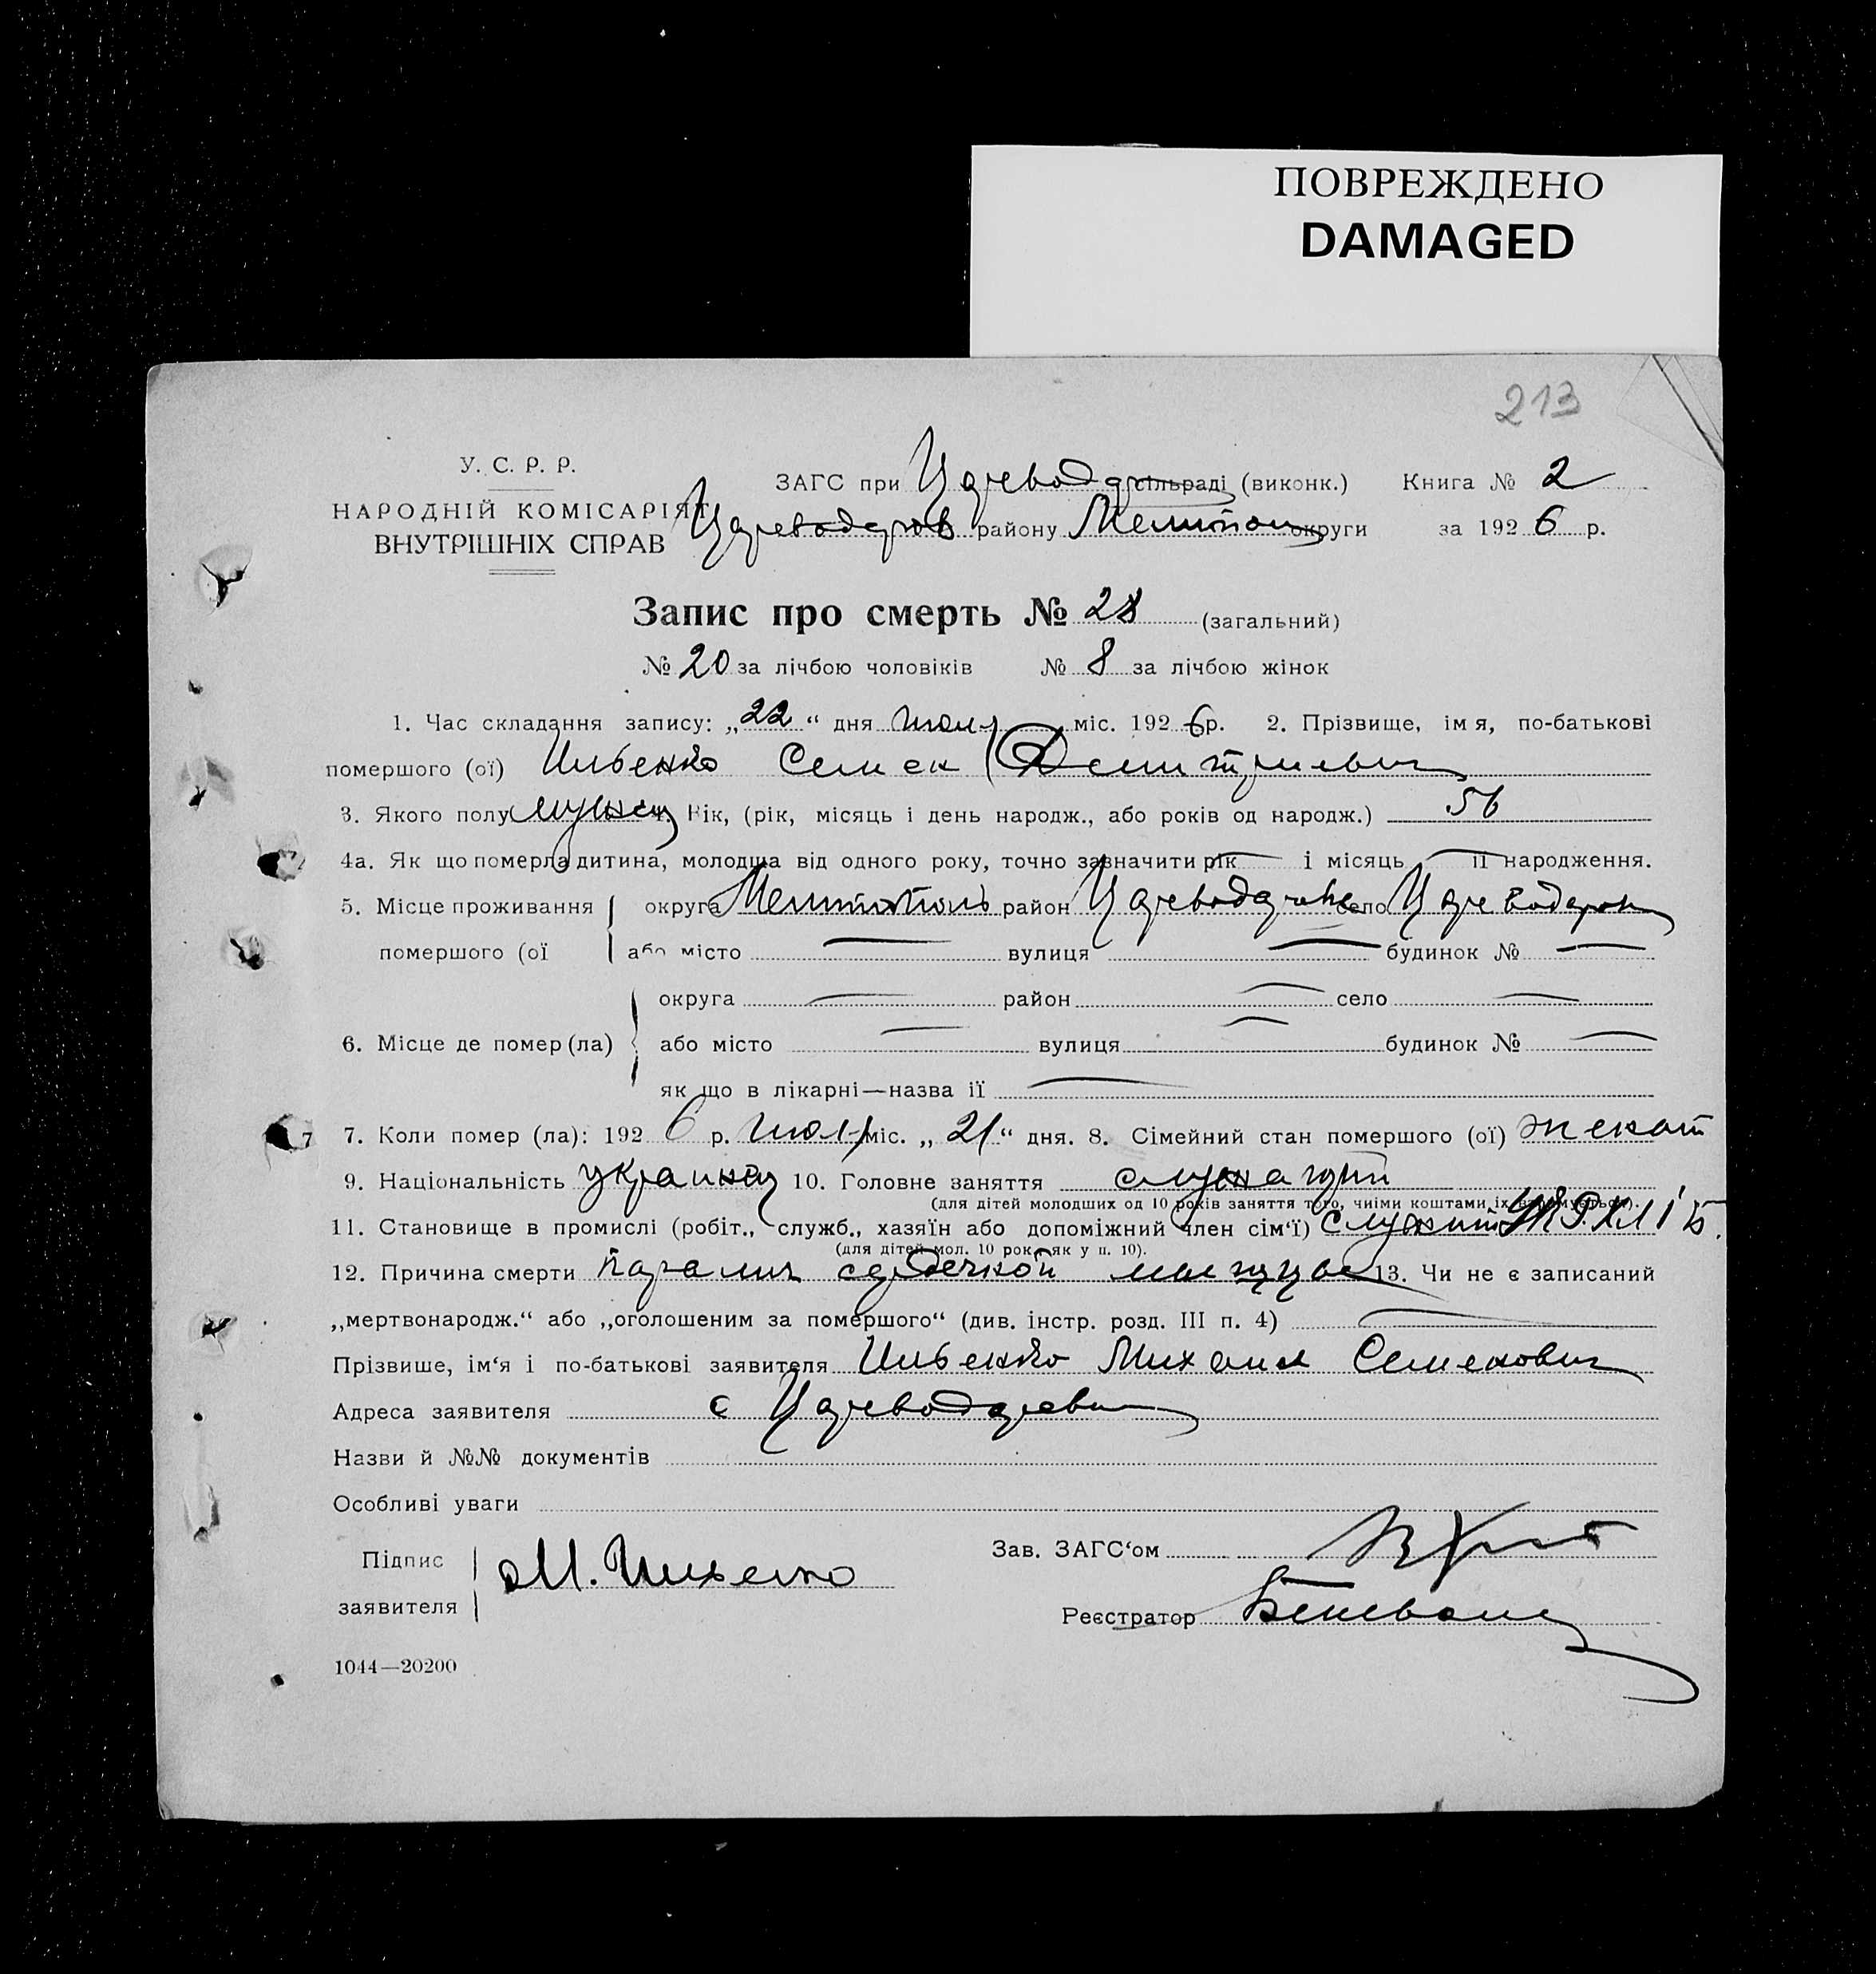 ПОВРЕЖДЕНО
DAMAGED
213
У. С. Р. Р.
НАРОДНІЙ КОМІСАРІЯТ
ВНУТРІШНІХ СПРАВ
ЗАГС при сільраді (виконк.) Книга № 2
району округи за 1926 р.
Запис про смерть № 28 (загальний)
№ 20 за лічбою чоловіків № 8 за лічбою жінок
1. Час складання запису: „22“ дня июля міс. 1926 р. 2. Прізвище, імя, по-батькові
помершого (ої) Семен
3. Якого полу 4. Вік, (рік, місяць і день народж., або років од народж.) 56
4а. Як що померла дитина, молодша від одного року, точно зазначити рік — і місяць — її народження.
5. Місце проживання округа район село
помершого (ої або місто — вулиця — будинок № —
округа — район — село —
6. Місце де помер (ла) або місто — вулиця — будинок № —
як що в лікарні—назва її —
7 7. Коли помер (ла): 1926 р. июля міс. „21“ дня. 8. Сімейний стан помершого (ої) женат
9. Національність 10. Головне заняття
(для дітей молодших од 10 років заняття того, чиїми коштами їх).
11. Становище в промислі (робіт., служб., хазяїн або допоміжний член сім‘ї)
(для дітей мол. 10 рок. як у п. 10).
12. Причина смерти паралич сердечной мышцы 13. Чи не є записаний
„мертвонародж.“ або „оголошеним за помершого“ (див. інстр. розд. III п. 4) —
Прізвише, ім‘я і по-батькові заявителя Михаил Семенович
Адреса заявителя с
Назви й №№ документів
Особливі уваги
Підпис
заявителя М.
Зав. ЗАГС‘ом
Реєстратор
1044—20200